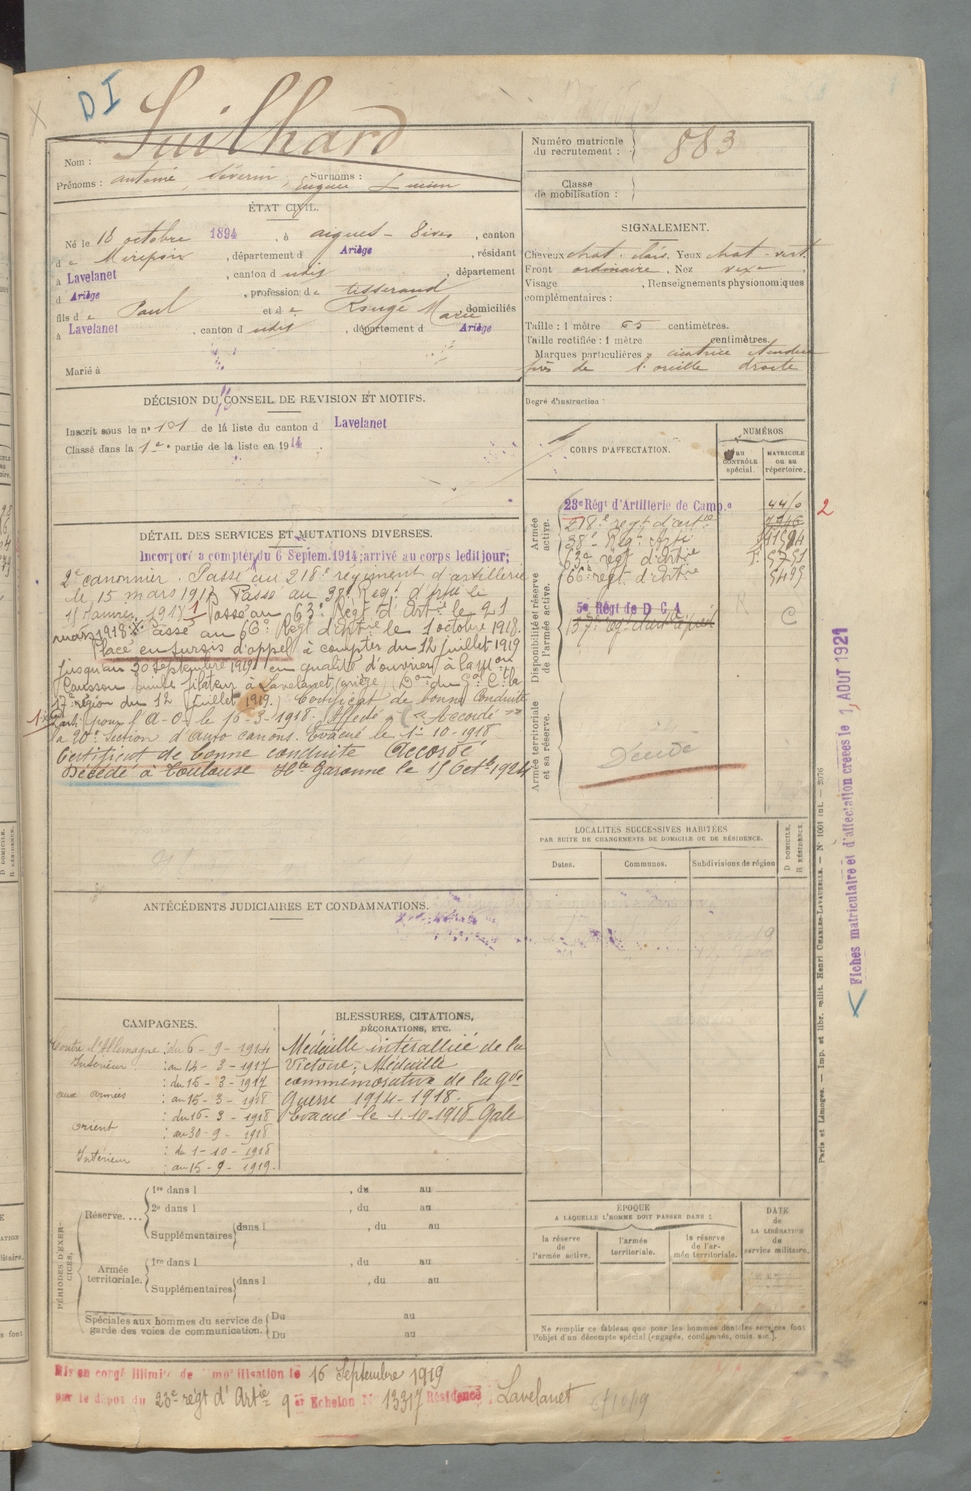 DI
Guilhard
Nom :
Prénoms : Antoine Séverin Eugène Lucien Surnoms :
Numéro matricule du recrutement : 883
Classe de mobilisation :
ÉTAT CIVIL.
Né le 18 octobre 1894, à Aigues-Vives, canton
de Mirepoix, département d Ariège, résidant
à Lavelanet, canton d udit, département
d Ariège, profession de tisserand
fils de Paul et de Rougé Marie, domiciliés
à Lavelanet, canton d udit, département d Ariège
Marié à
SIGNALEMENT.
Cheveux chat. clair. Yeux chat-vert.
Front ordinaire, Nez
Visage , Renseignements physionomiques
complémentaires :
Taille : 1 mètre 65 centimètres.
Taille rectifiée : 1 mètre centimètres.
Marques particulières : cicatrice étendue
près de l'oreille droite
Degré d'instruction :
DÉCISION DU CONSEIL DE REVISION ET MOTIFS.
Inscrit sous le n° 101 de la liste du canton d Lavelanet
Classé dans la 1e partie de la liste en 1914
DÉTAIL DES SERVICES ET MUTATIONS DIVERSES.
Incorporé à compter du 6 Septem. 1914; arrivé au corps ledit jour;
2e canonnier. Passé au 218e régiment d'artillerie
le 15 mars 1917. Passé au 38e Reg. d'artie le
1er Janvier 1918. Passé au 63e Régt d'artie le 21
mars 1918. Passé au 66e Régt d'Artie le 1 octobre 1918.
Placé en sursis d'appel à compter du 12 Juillet 1919
jusqu'au 30 Septembre 1919 en qualité d'ouvrier à la Mon
filateur à Lavelanet (Ariège) Don du Gal Ct la
17e région du 12 Juillet 1919. Certificat de bonne Conduite
Accordé
parti pour l'A-O. le 16-3-1918. Affecté
la 20e Section d'auto canons. Evacué le 1-10-1918
Certificat de bonne conduite Accordé
Décédé à Toulouse Hte Garonne le 15 Octbe 1924
CORPS D'AFFECTATION.
NUMÉROS
au CONTRÔLE spécial.
MATRICULE ou au répertoire.
Armée active.
23e Régt d'Artillerie de Camp.e 4460
2
218e regt d'artie
38e Régt Artie
63e regt d'Artie
66e regt d'Artie
Disponibilité et réserve de l'armée active.
5e Régt de D C A
C
Armée territoriale et sa réserve.
Décédé
Fiches matriculaire et d'affectation créées le 1 AOUT 1921
LOCALITÉS SUCCESSIVES HABITÉES
PAR SUITE DE CHANGEMENTS DE DOMICILE OU DE RÉSIDENCE.
D DOMICILE.
R RÉSIDENCE.
Dates.
Communes.
Subdivisions de région
ANTÉCÉDENTS JUDICIAIRES ET CONDAMNATIONS.
CAMPAGNES.
Contre l'Allemagne : du 6-9-1914
Intérieur : au 14-3-1917
: du 15-3-1917
aux armées : au 15-3-1918
: du 16-3-1918
Orient : au 30-9-1918
: du 1-10-1918
Intérieur : au 15-9-1919.
BLESSURES, CITATIONS,
DÉCORATIONS, ETC.
Médaille interalliée de la
Victoire; Médaille
commémorative de la gde
Guerre 1914-1918.
Evacué le 1.10-1918-Gale
PÉRIODES D'EXERCICES.
Réserve....
1re dans l , du au
2e dans l , du au
Supplémentaires dans l , du au
Armée territoriale.
1re dans l , du au
Supplémentaires dans l , du au
Spéciales aux hommes du service de garde des voies de communication.
Du au
Du au
ÉPOQUE
A LAQUELLE L'HOMME DOIT PASSER DANS :
la réserve de l'armée active.
l'armée territoriale.
la réserve de l'armée territoriale.
DATE de LA LIBÉRATION du service militaire.
Ne remplir ce tableau que pour les hommes dont les services font
l'objet d'un décompte spécial (engagés, condamnés, omis, etc.).
Paris et Limoges. — Imp. et libr. milit. Henri CHARLES-LAVAUZELLE. — N° 1001 int. — 2076
Mis en congé illimité de démobilisation le 16 Septembre 1919
par le dépôt du 23e regt d'Artie 9e Echelon N° 13317 Résidence, Lavelanet